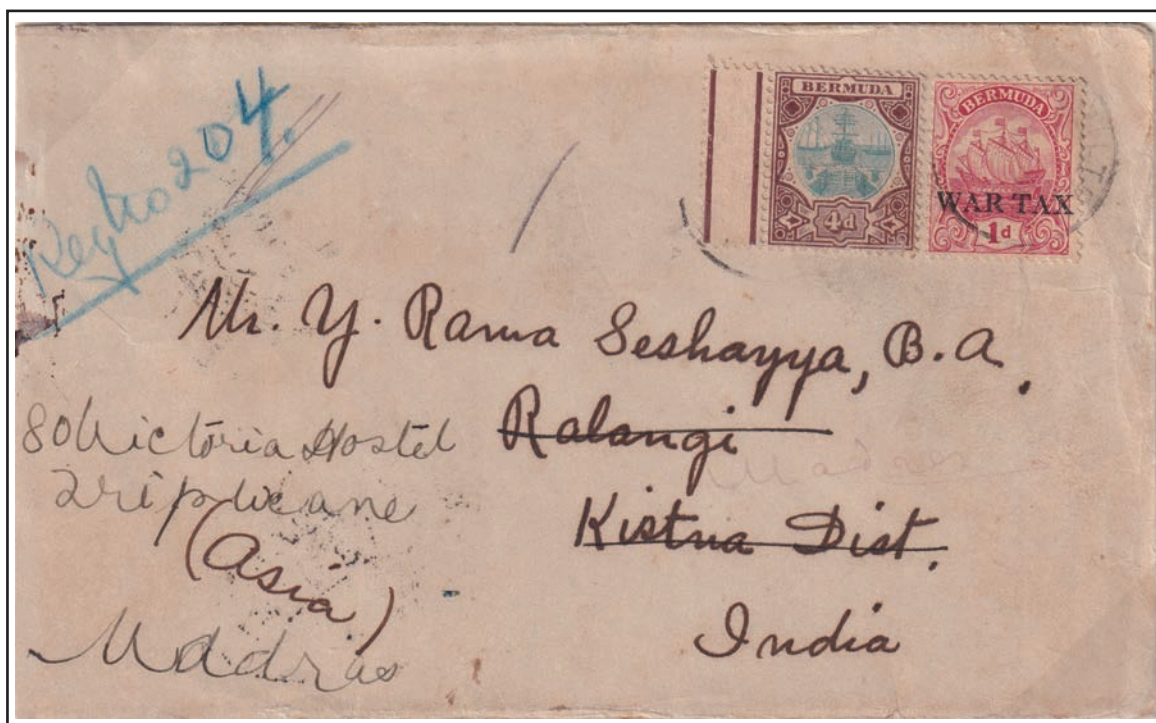 Reg No 204.
BERMUDA
4d
BERMUDA
WAR TAX
1d
Mr. Y. Rama Seshayya, B.A.
Ralangi
Madras
Kistna Dist.
India
80 Victoria Hostel
Triplicane
(Asia)
Madras